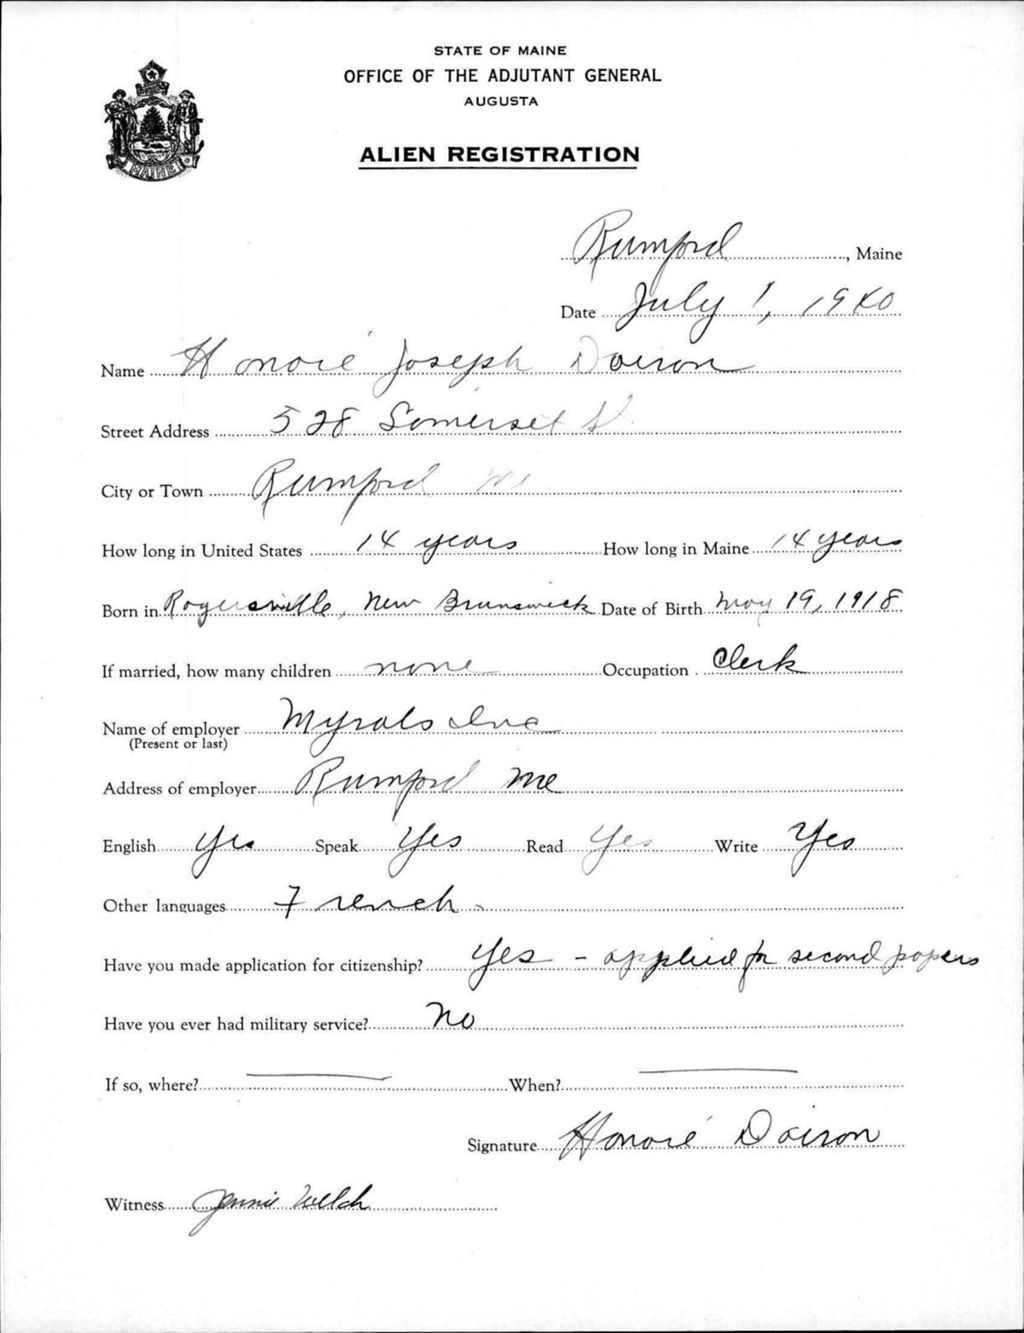 STATE OF MAINE
OFFICE OF THE ADJUTANT GENERAL
AUGUSTA
ALIEN REGISTRATION
MAINE
Rumford, Maine
Date July 1, 1940
Name Honoré Joseph Doiron
Street Address 528 Somerset St
City or Town Rumford Me
How long in United States 14 years How long in Maine 14 years
Born in Rogersville, New Brunswick Date of Birth May 19, 1918
If married, how many children none Occupation Clerk
Name of employer Myrals Inc
(Present or last)
Address of employer Rumford Me
English Yes Speak Yes Read Yes Write Yes
Other languages French
Have you made application for citizenship? Yes - applied for second papers
Have you ever had military service? No
If so, where? When?
Signature Honoré Doiron
Witness Jennie Welch